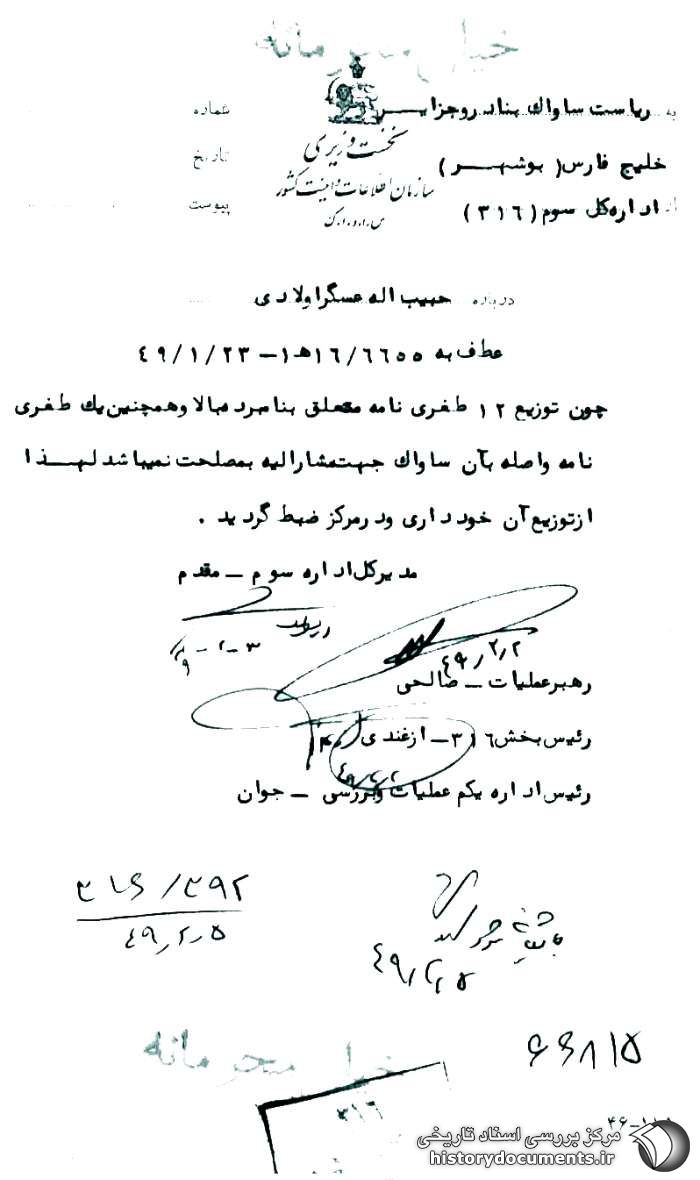 خیلی محرمانه
به ریاست ساواک بنادر وجزایر
خلیج فارس ( بوشهر )
از اداره کل سوم ( ۳۱۶ )
نخست وزیری
سازمان اطلاعات و امنیت کشور
س.ا.و.ا.ک
شماره
تاریخ
پیوست
درباره حبیب اله عسگراولادی
عطف به ۱۶/۶٦۵۵ه‍ ۱ – ۴۹/۱/۲۳
چون توزیع ۱۲ طغری نامه متعلق بنامبرده بالا وهمچنین یک طغری
نامه واصله بآن ساواک جهت مشارالیه بمصلحت نمیباشد لهذا
ازتوزیع آن خودداری ودرمرکز ضبط گردید .
مدیرکل اداره سوم – مقدم
۴۹/۲/۲
رهبرعملیات – صالحی
رئیس بخش ۳۱۶ – ازغندی
رئیس اداره یکم عملیات وبررسی – جوان
۳۱۶/۳۹۲
۴۹/۲/۵
۴۹/۲/۵
۶۶۸۱۵
خیلی محرمانه
۳۱۶
مرکز بررسی اسناد تاریخی
historydocuments.ir